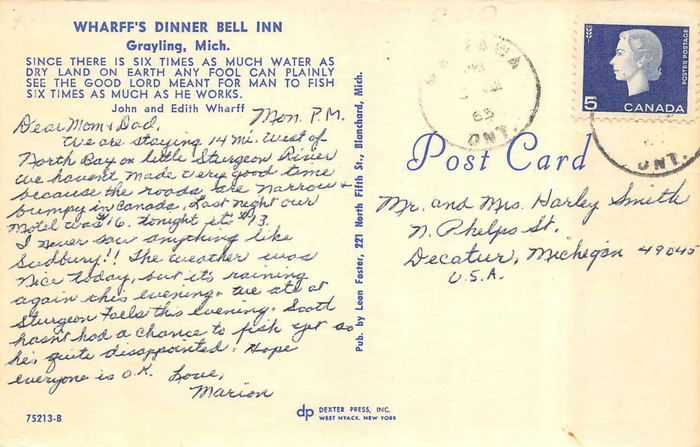 WHARFF'S DINNER BELL INN
Grayling, Mich.
SINCE THERE IS SIX TIMES AS MUCH WATER AS
DRY LAND ON EARTH ANY FOOL CAN PLAINLY
SEE THE GOOD LORD MEANT FOR MAN TO FISH
SIX TIMES AS MUCH AS HE WORKS.
John and Edith Wharff
Mon. P.M.
Dear Mom & Dad,
We are staying 14 mi. West of
North Bay on little Sturgeon River
We havent made very good time
because the roads are narrow &
bumpy in Canada. Last night our
Motel was $16. tonight its $13.
I never saw anything like
Sudbury!! The weather was
nice today, but its raining
again this evening. We ate at
Sturgeon Falls this evening. Scott
hasnt had a chance to fish yet so
he's quite disappointed. Hope
everyone is O.K. Love,
Marion
75213-B
Pub. by Leon Foster, 221 North Fifth St., Blanchard, Mich.
dp DEXTER PRESS, INC.
WEST NYACK, NEW YORK
65
ONT.
5
CANADA
POSTES POSTAGE
ONT.
Post Card
Mr. and Mrs. Harley Smith
N. Phelps St.
Decatur, Michigan 49045
U.S.A.